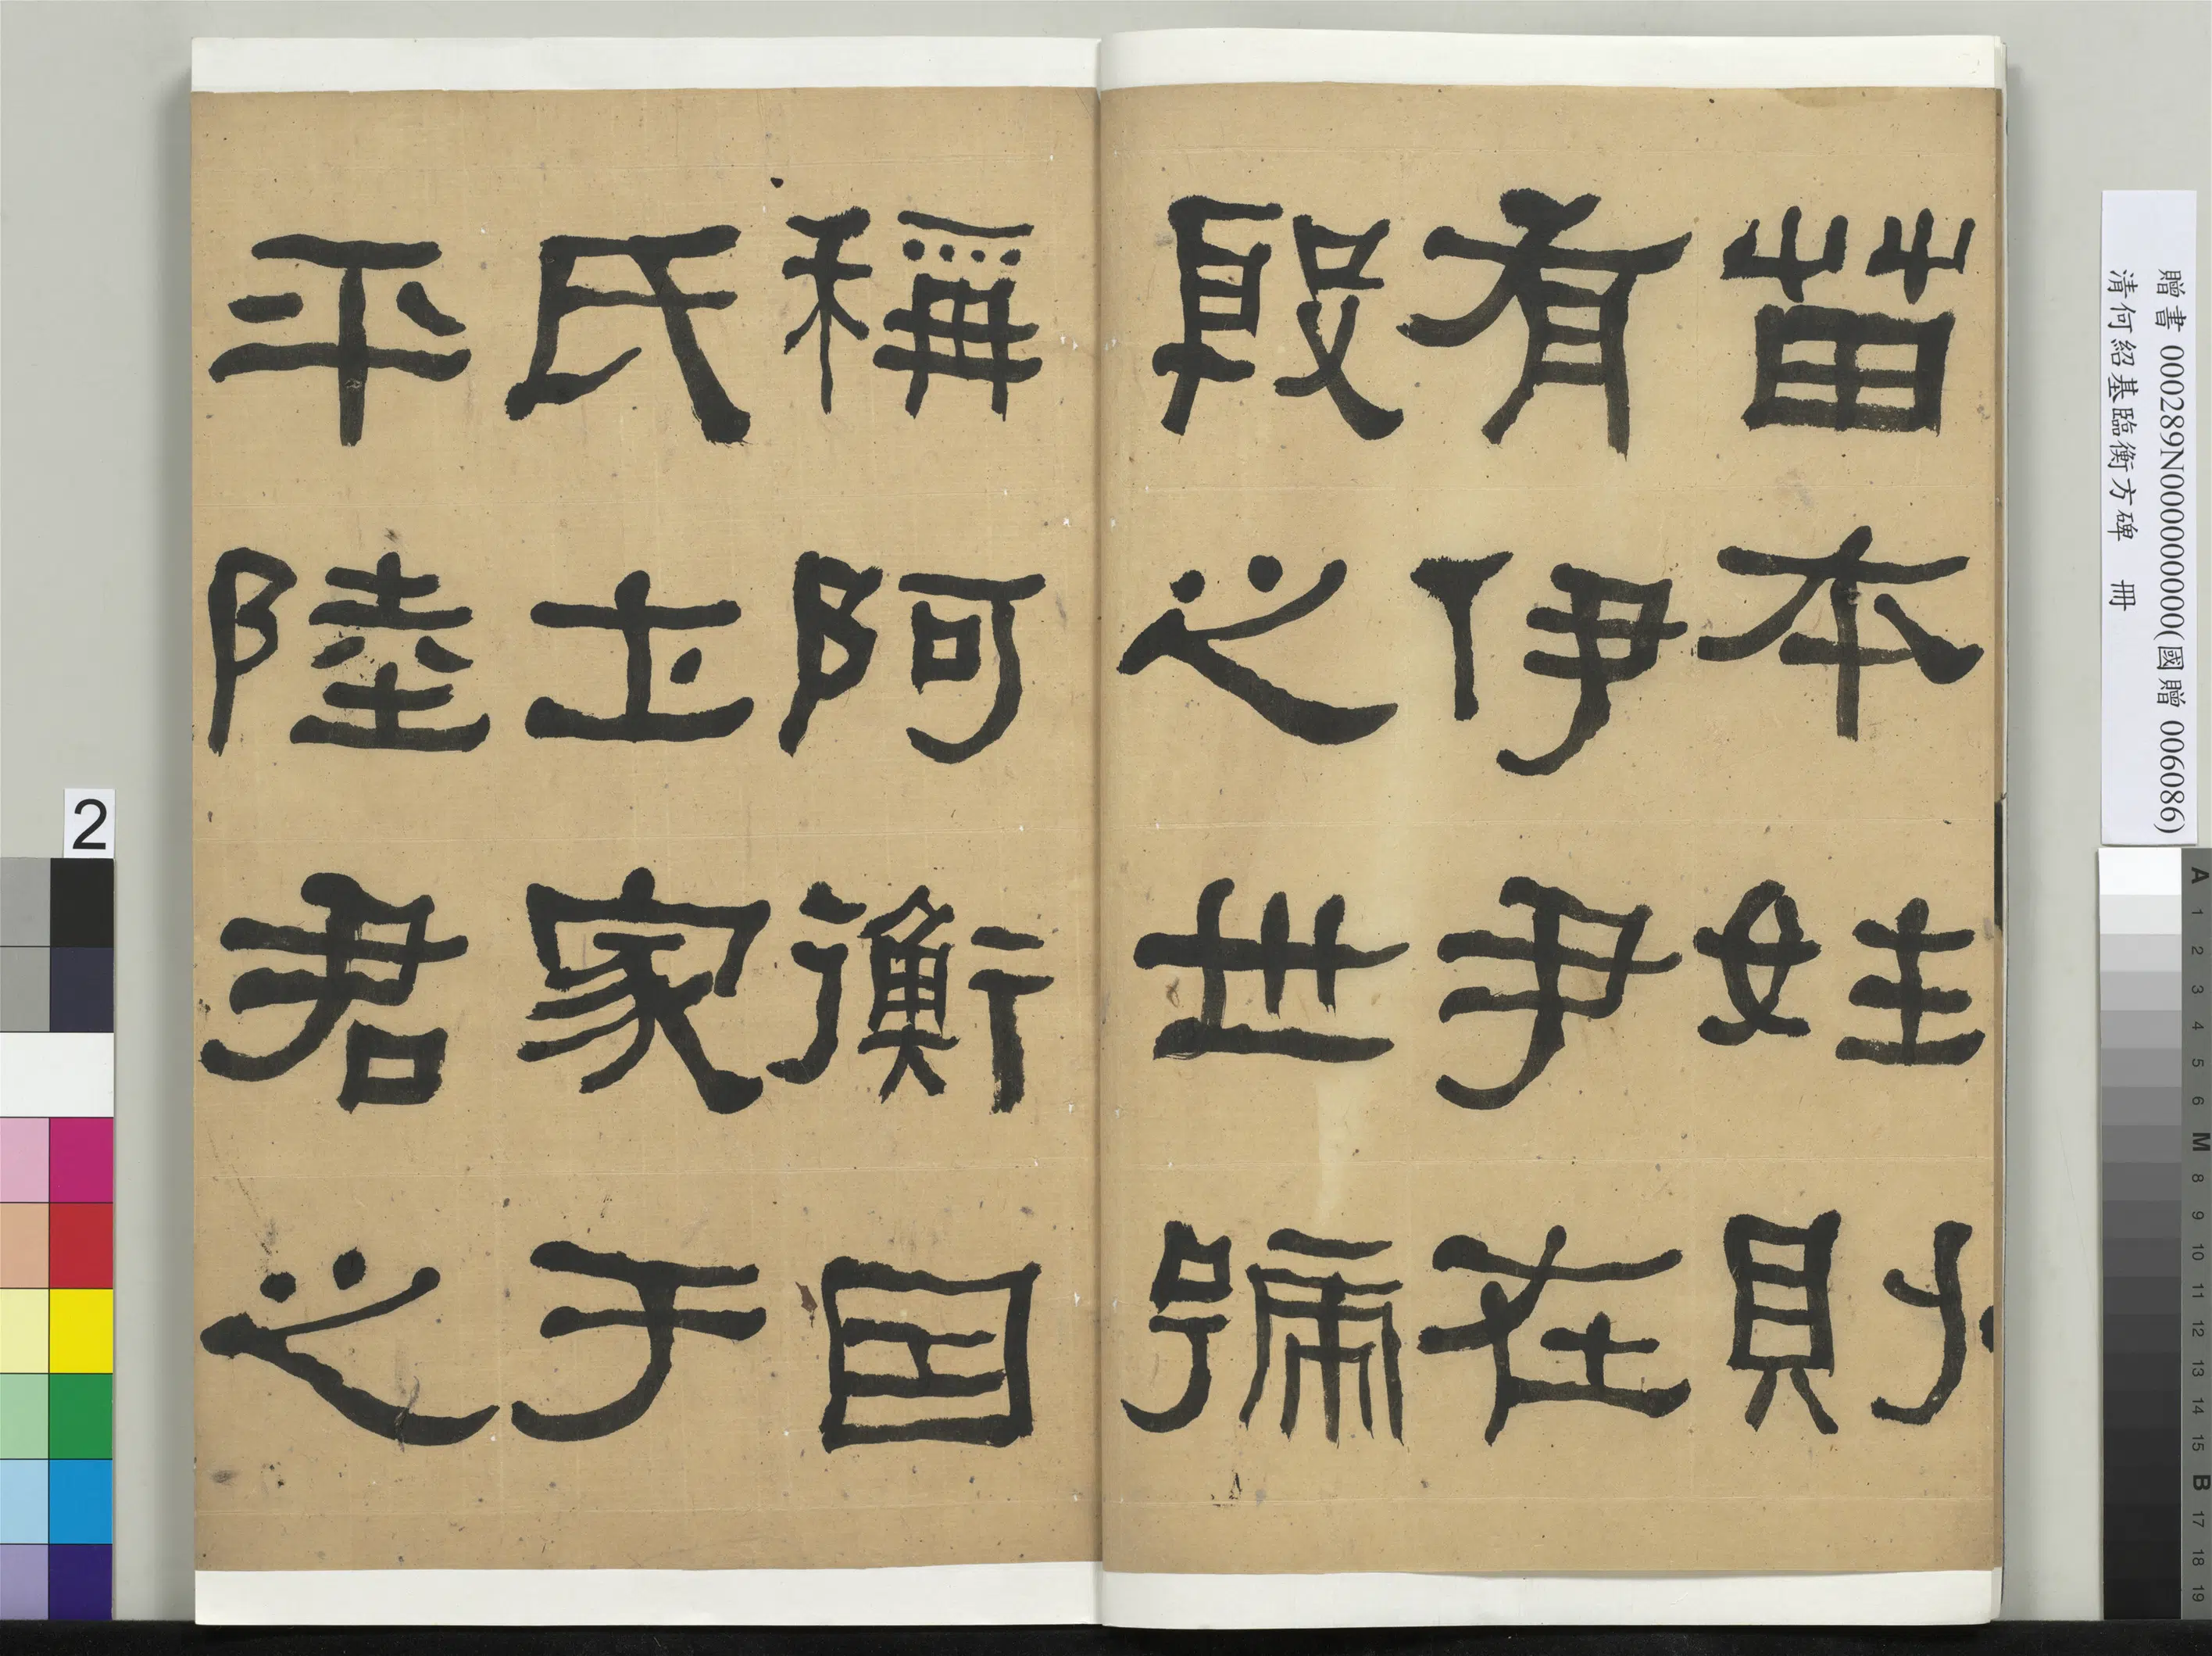 苗本姓則
有伊尹在
殷之世號
稱阿衡因
氏士家于
平陸君之
贈書 000289N000000000(國贈 006086)
清何紹基臨衡方碑 冊
2
A
1
2
3
4
5
6
M
8
9
10
11
12
13
14
15
B
17
18
19